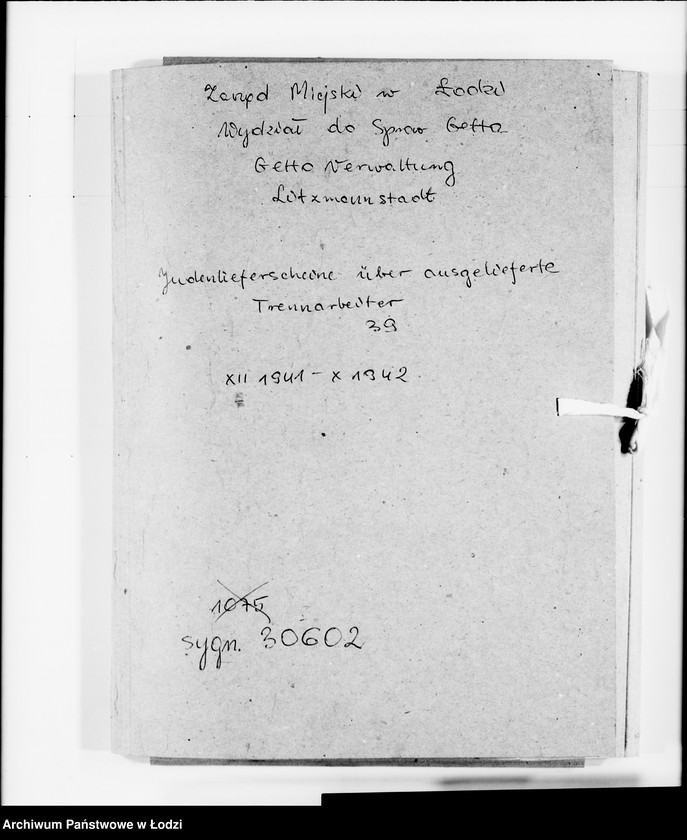 Zarząd Miejski w Łodzi
Wydział do Spraw Getta
Getto Verwaltung
Litzmannstadt
Judenlieferscheine über ausgelieferte
Trennarbeiter
39
XII 1941 - X 1942
1075
sygn. 30602
Archiwum Państwowe w Łodzi